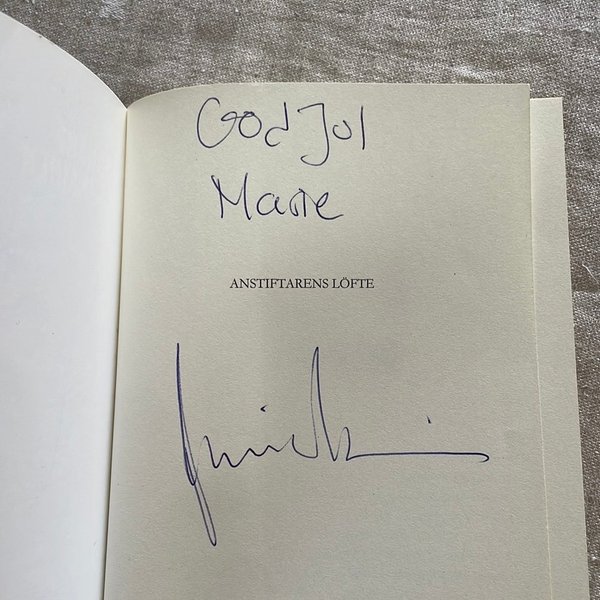 God Jul
Marie
ANSTIFTARENS LÖFTE